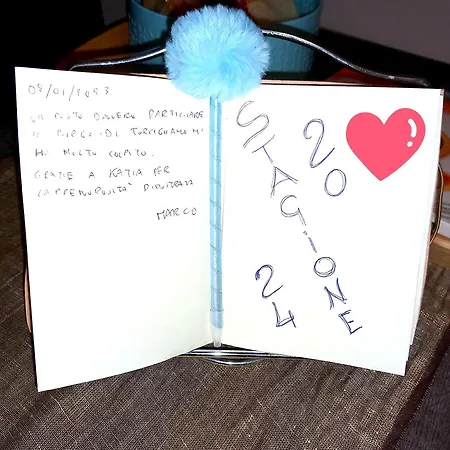 08/01/2023
UN POSTO DAVVERO PARTICOLARE
IL BORGO DI TORRIGNANO MI
HA MOLTO COLPITO.
GRAZIE A KATIA PER
MARCO
STAGIONE
20
24